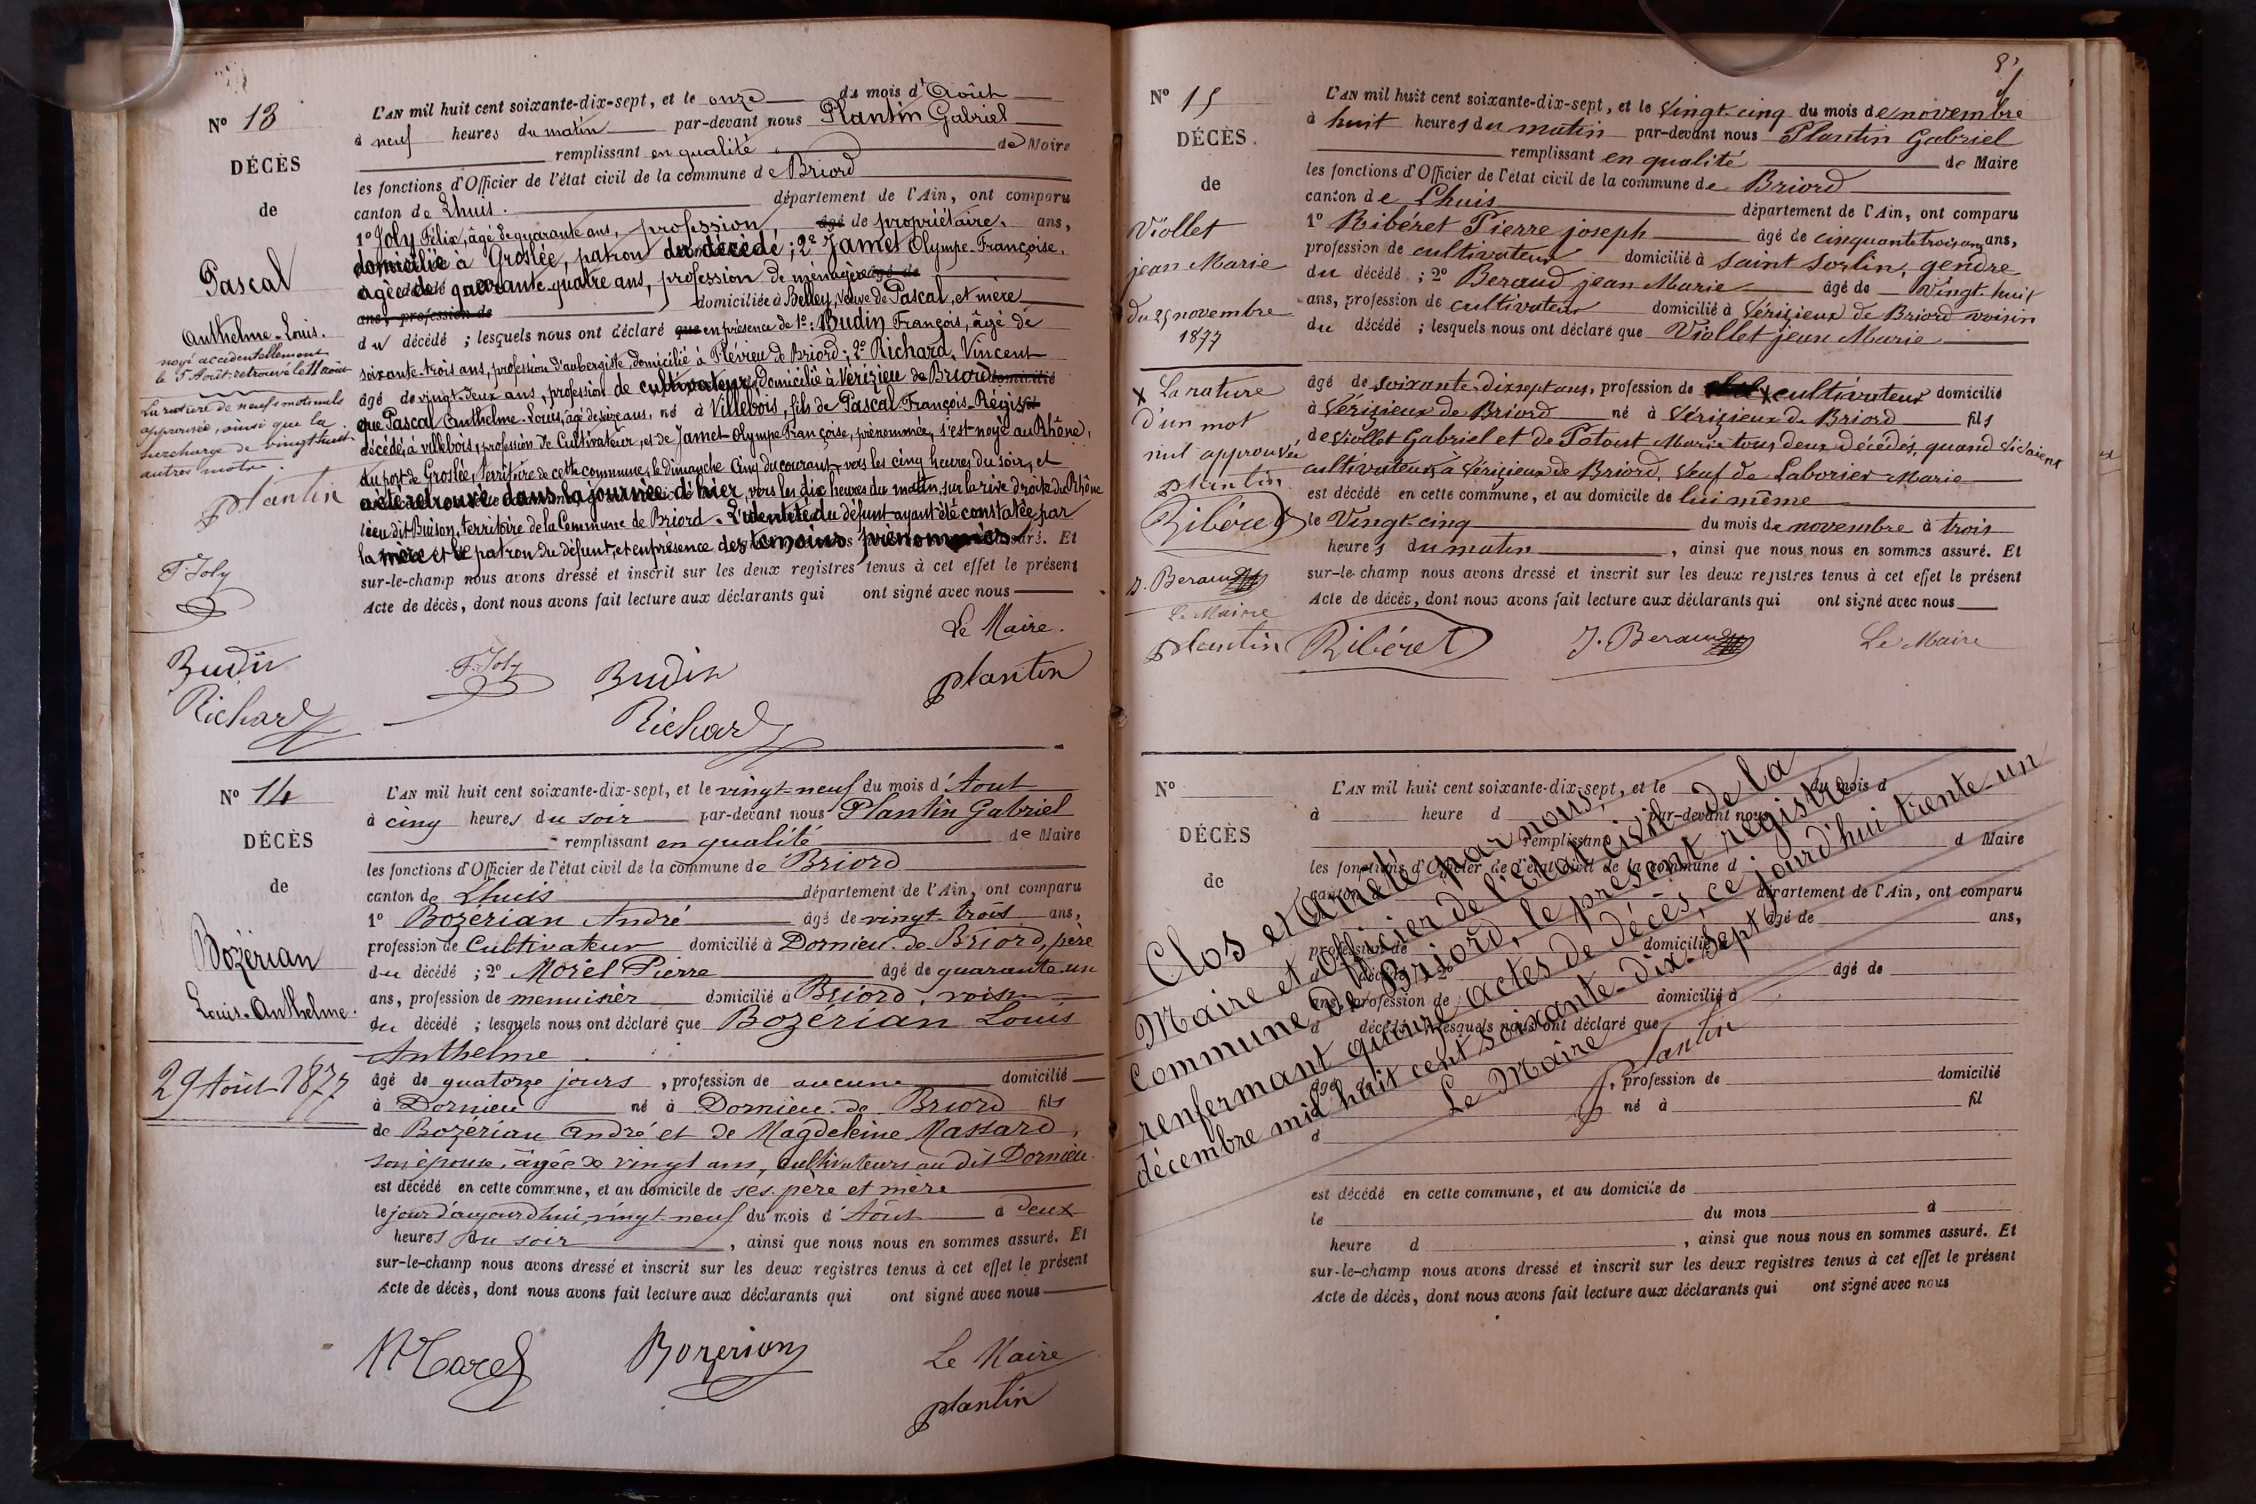 Nº 13
DÉCÈS
de
Pascal
Anthelme-Louis.
noyé accidentellement
le 5 Août retrouvé le 11 août
La rature de neuf mots nuls
approuvée, ainsi que la
surcharge de vingt huit
autres mots.
plantin
F. Joly
Budin
Richard
L'AN mil huit cent soixante-dix-sept, et le onze du mois d'Août
à neuf heures du matin par-devant nous Plantin Gabriel
remplissant en qualité de Maire
les fonctions d'Officier de l'état civil de la commune de Briord
canton de Lhuis. département de l'Ain, ont comparu
1º Joly Félix, âgé de quarante ans, profession âgé de propriétaire. ans,
domicilié à Groslée, patron du décédé; 2º Jamet Olympe-Françoise,
agée de quarante-quatre ans, profession de ménagère âgé de
ans, profession de domiciliée à Belley, veuve de Pascal, et mère
du décédé ; lesquels nous ont déclaré que en présence de 1º: Budin François, âgé de
soixante-trois ans, profession d'aubergiste, domicilié à Flévieu de Briord; 2º Richard, Vincent
âgé de vingt-deux ans, profession de cultivateur, domicilié à Vérizieu de Briord domicilié
que Pascal Anthelme-Louis, âgé de seize ans, né à Villebois, fils de Pascal François-Régis
décédé, à villebois, profession de Cultivateur, et de Jamet-Olympe Françoise, prénommée, s'est noyé au Rhône,
au port de Groslée, territoire de cette commune, le dimanche cinq du courant, vers les cinq heures du soir, et
a été retrouvé dans la journée d'hier, vers les dix heures du matin, sur la rive droite du Rhône
lieu dit Buison, territoire de la Commune de Briord. L'identité du défunt ayant été constatée par
la mère et le patron du défunt, et en présence des témoins prénommés assuré. Et
sur-le-champ nous avons dressé et inscrit sur les deux registres tenus à cet effet le présent
Acte de décès, dont nous avons fait lecture aux déclarants qui ont signé avec nous
Le Maire.
F. Joly Budin plantin
Richard
Nº 14
DÉCÈS
de
Bozérian
Louis-Anthelme.
29 Août 1877
L'AN mil huit cent soixante-dix-sept, et le vingt-neuf du mois d'Aout
à cinq heures du soir par-devant nous Plantin Gabriel
remplissant en qualité de Maire
les fonctions d'Officier de l'état civil de la commune de Briord
canton de Lhuis département de l'Ain, ont comparu
1º Bozérian André âgé de vingt-trois ans,
profession de Cultivateur domicilié à Dornieu de Briord, père
du décédé ; 2º Morel Pierre âgé de quarante-un
ans, profession de menuisier domicilié à Briord, voisin
du décédé ; lesquels nous ont déclaré que Bozérian Louis
Anthelme
âgé de quatorze jours, profession de aucune domicilié
à Dornieu né à Dornieu de Briord fils
de Bozérian andré et de Magdeleine Massard,
son épouse, âgée de vingt ans, cultivateurs au dit Dornieu.
est décédé en cette commune, et au domicile de ses père et mère
le jour d'aujourd'hui vingt-neuf du mois d'Août à deux
heures du soir, ainsi que nous nous en sommes assuré. Et
sur-le-champ nous avons dressé et inscrit sur les deux registres tenus à cet effet le présent
Acte de décès, dont nous avons fait lecture aux déclarants qui ont signé avec nous
Morel Bozerian Le Maire
plantin
Nº 15
DÉCÈS.
de
Viollet
jean Marie
du 25 novembre
1877
X La rature
d'un mot
nul approuvée
plantin
Ribéret
J. Beraud
Le Maire
plantin
L'AN mil huit cent soixante-dix-sept, et le vingt-cinq du mois de novembre
à huit heures du matin par-devant nous Plantin Gabriel
remplissant en qualité de Maire
les fonctions d'Officier de l'état civil de la commune de Briord
canton de Lhuis département de l'Ain, ont comparu
1º Ribéret Pierre joseph âgé de cinquante trois ans ans,
profession de cultivateur domicilié à saint Sorlin, gendre
du décédé ; 2º Beraud jean Marie âgé de Vingt-huit
ans, profession de cultivateur domicilié à Vérizieux de Briord voisin
du décédé ; lesquels nous ont déclaré que Viollet jean Marie
âgé de soixante-dix sept ans, profession de X cultivateur domicilié
à Vérizieux de Briord né à Vérizieux de Briord fils
de Viollet Gabriel et de Potout Marie tous deux décédés, quand vivaient
cultivateurs à Vérizieux de Briord, veuf de Laborier Marie
est décédé en cette commune, et au domicile de lui même
le Vingt-cinq du mois de novembre à trois
heures du matin, ainsi que nous nous en sommes assuré. Et
sur-le-champ nous avons dressé et inscrit sur les deux registres tenus à cet effet le présent
Acte de décès, dont nous avons fait lecture aux déclarants qui ont signé avec nous
Ribéret J. Beraud Le Maire
Nº
DÉCÈS
de
L'AN mil huit cent soixante-dix-sept, et le du mois d
à heure d par-devant nous
remplissant d Maire
les fonctions d'Officier de l'état civil de la commune d
canton département de l'Ain, ont comparu
âgé de ans,
profession de domicilié
d décédé 2º âgé de
ans, profession de domicilié à
d décédé ; lesquels nous ont déclaré que
âgé de , profession de domicilié
à né à fil
d
est décédé en cette commune, et au domicile de
le du mois à
heure d , ainsi que nous nous en sommes assuré. Et
sur-le-champ nous avons dressé et inscrit sur les deux registres tenus à cet effet le présent
Acte de décès, dont nous avons fait lecture aux déclarants qui ont signé avec nous
Clos et arrêté par nous,
Maire et officier de l'Etat civil de la
commune de Briord, le présent registre
renfermant quinze actes de décès, ce jourd'hui trente-un
décembre mil huit cent soixante-dix-sept.
Le Maire
Plantin